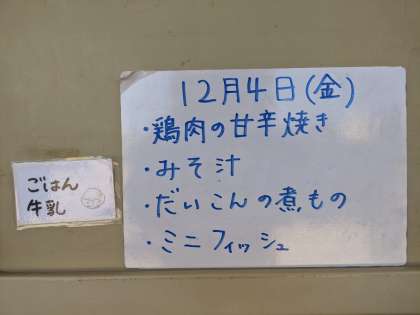 12月4日(金)
・鶏肉の甘辛焼き
・みそ汁
・だいこんの煮もの
・ミニフィッシュ
ごはん
牛乳